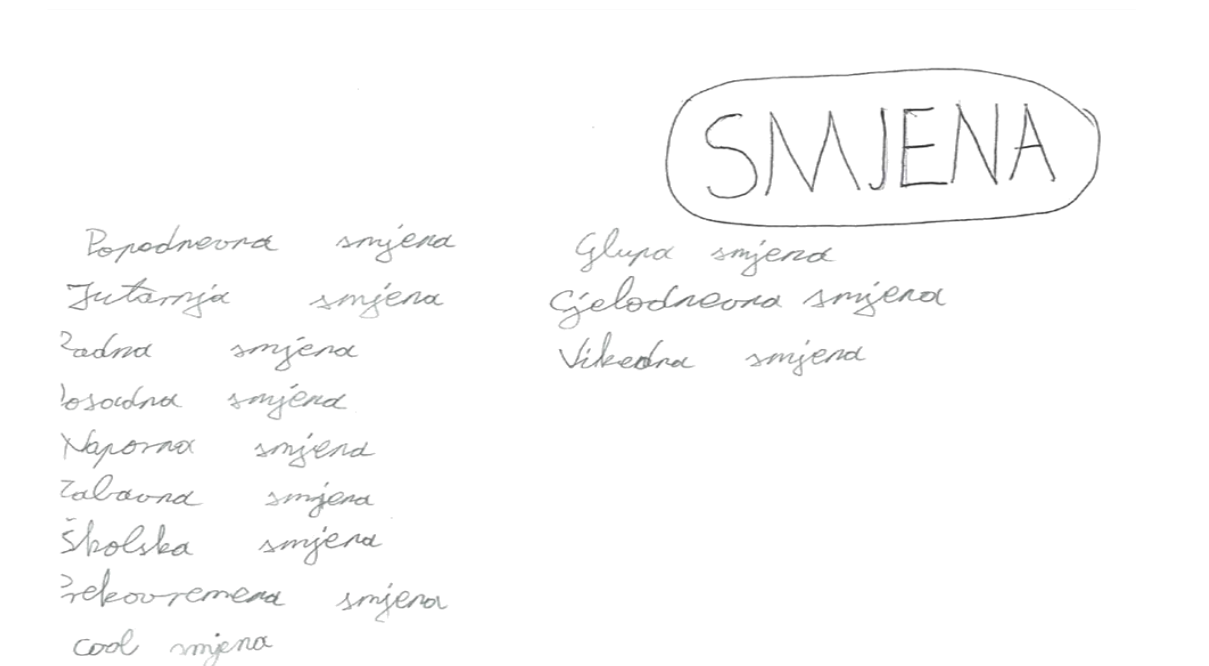 SMJENA
Popodnevna smjena
Jutarnja smjena
Radna smjena
Dosadna smjena
Naporna smjena
Zabavna smjena
Školska smjena
Prekovremena smjena
cool smjena
Glupa smjena
Cjelodnevna smjena
Vikedna smjena